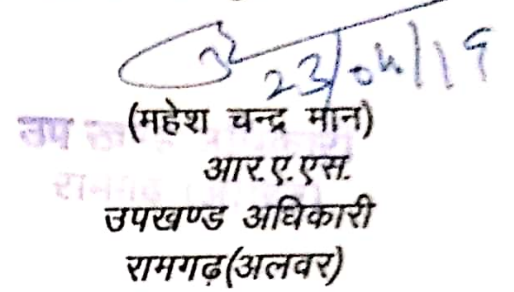 23/04/19
(महेश चन्द्र मान)
आर.ए.एस.
उपखण्ड अधिकारी
रामगढ़(अलवर)